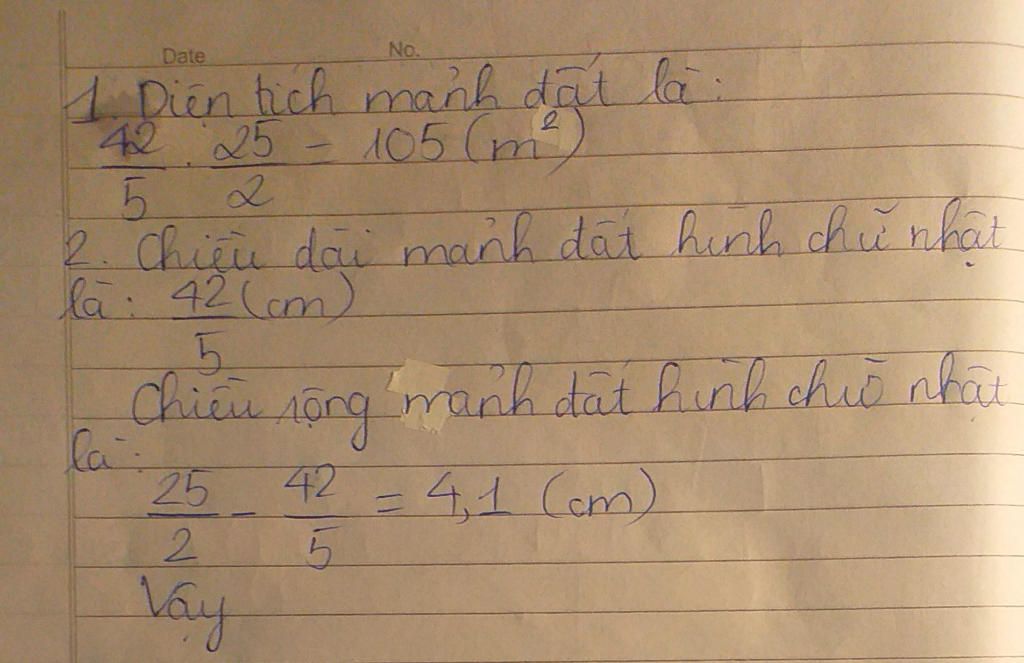 Date No.
1. Diện tích mảnh đất là:
42/5 . 25/2 = 105 (m²)
2. Chiều dài mảnh đất hình chữ nhật
là: 42/5 (cm)
Chiều rộng mảnh đất hình chữ nhật
là:
25/2 - 42/5 = 4,1 (cm)
Vậy